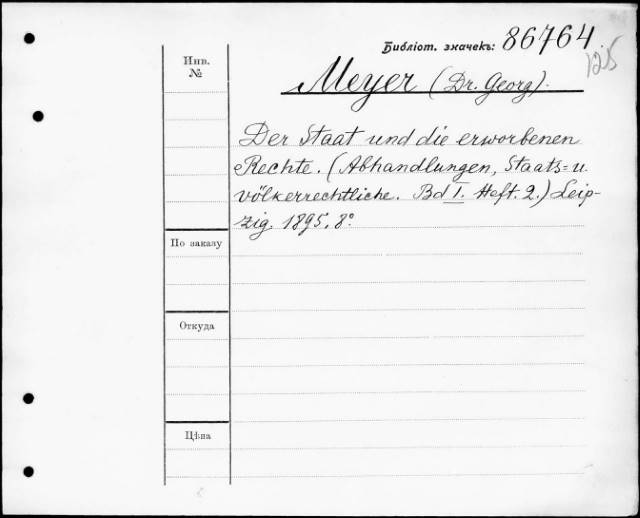 Библіот. значекъ: 86764
125
Инв.
№
Meyer (Dr. Georg).
Der Staat und die erworbenen
Rechte. (Abhandlungen, Staats=u.
völkerrechtliche. Bd I. Heft. 2.) Leip-
zig. 1895. 8°.
По заказу
Откуда
Цѣна